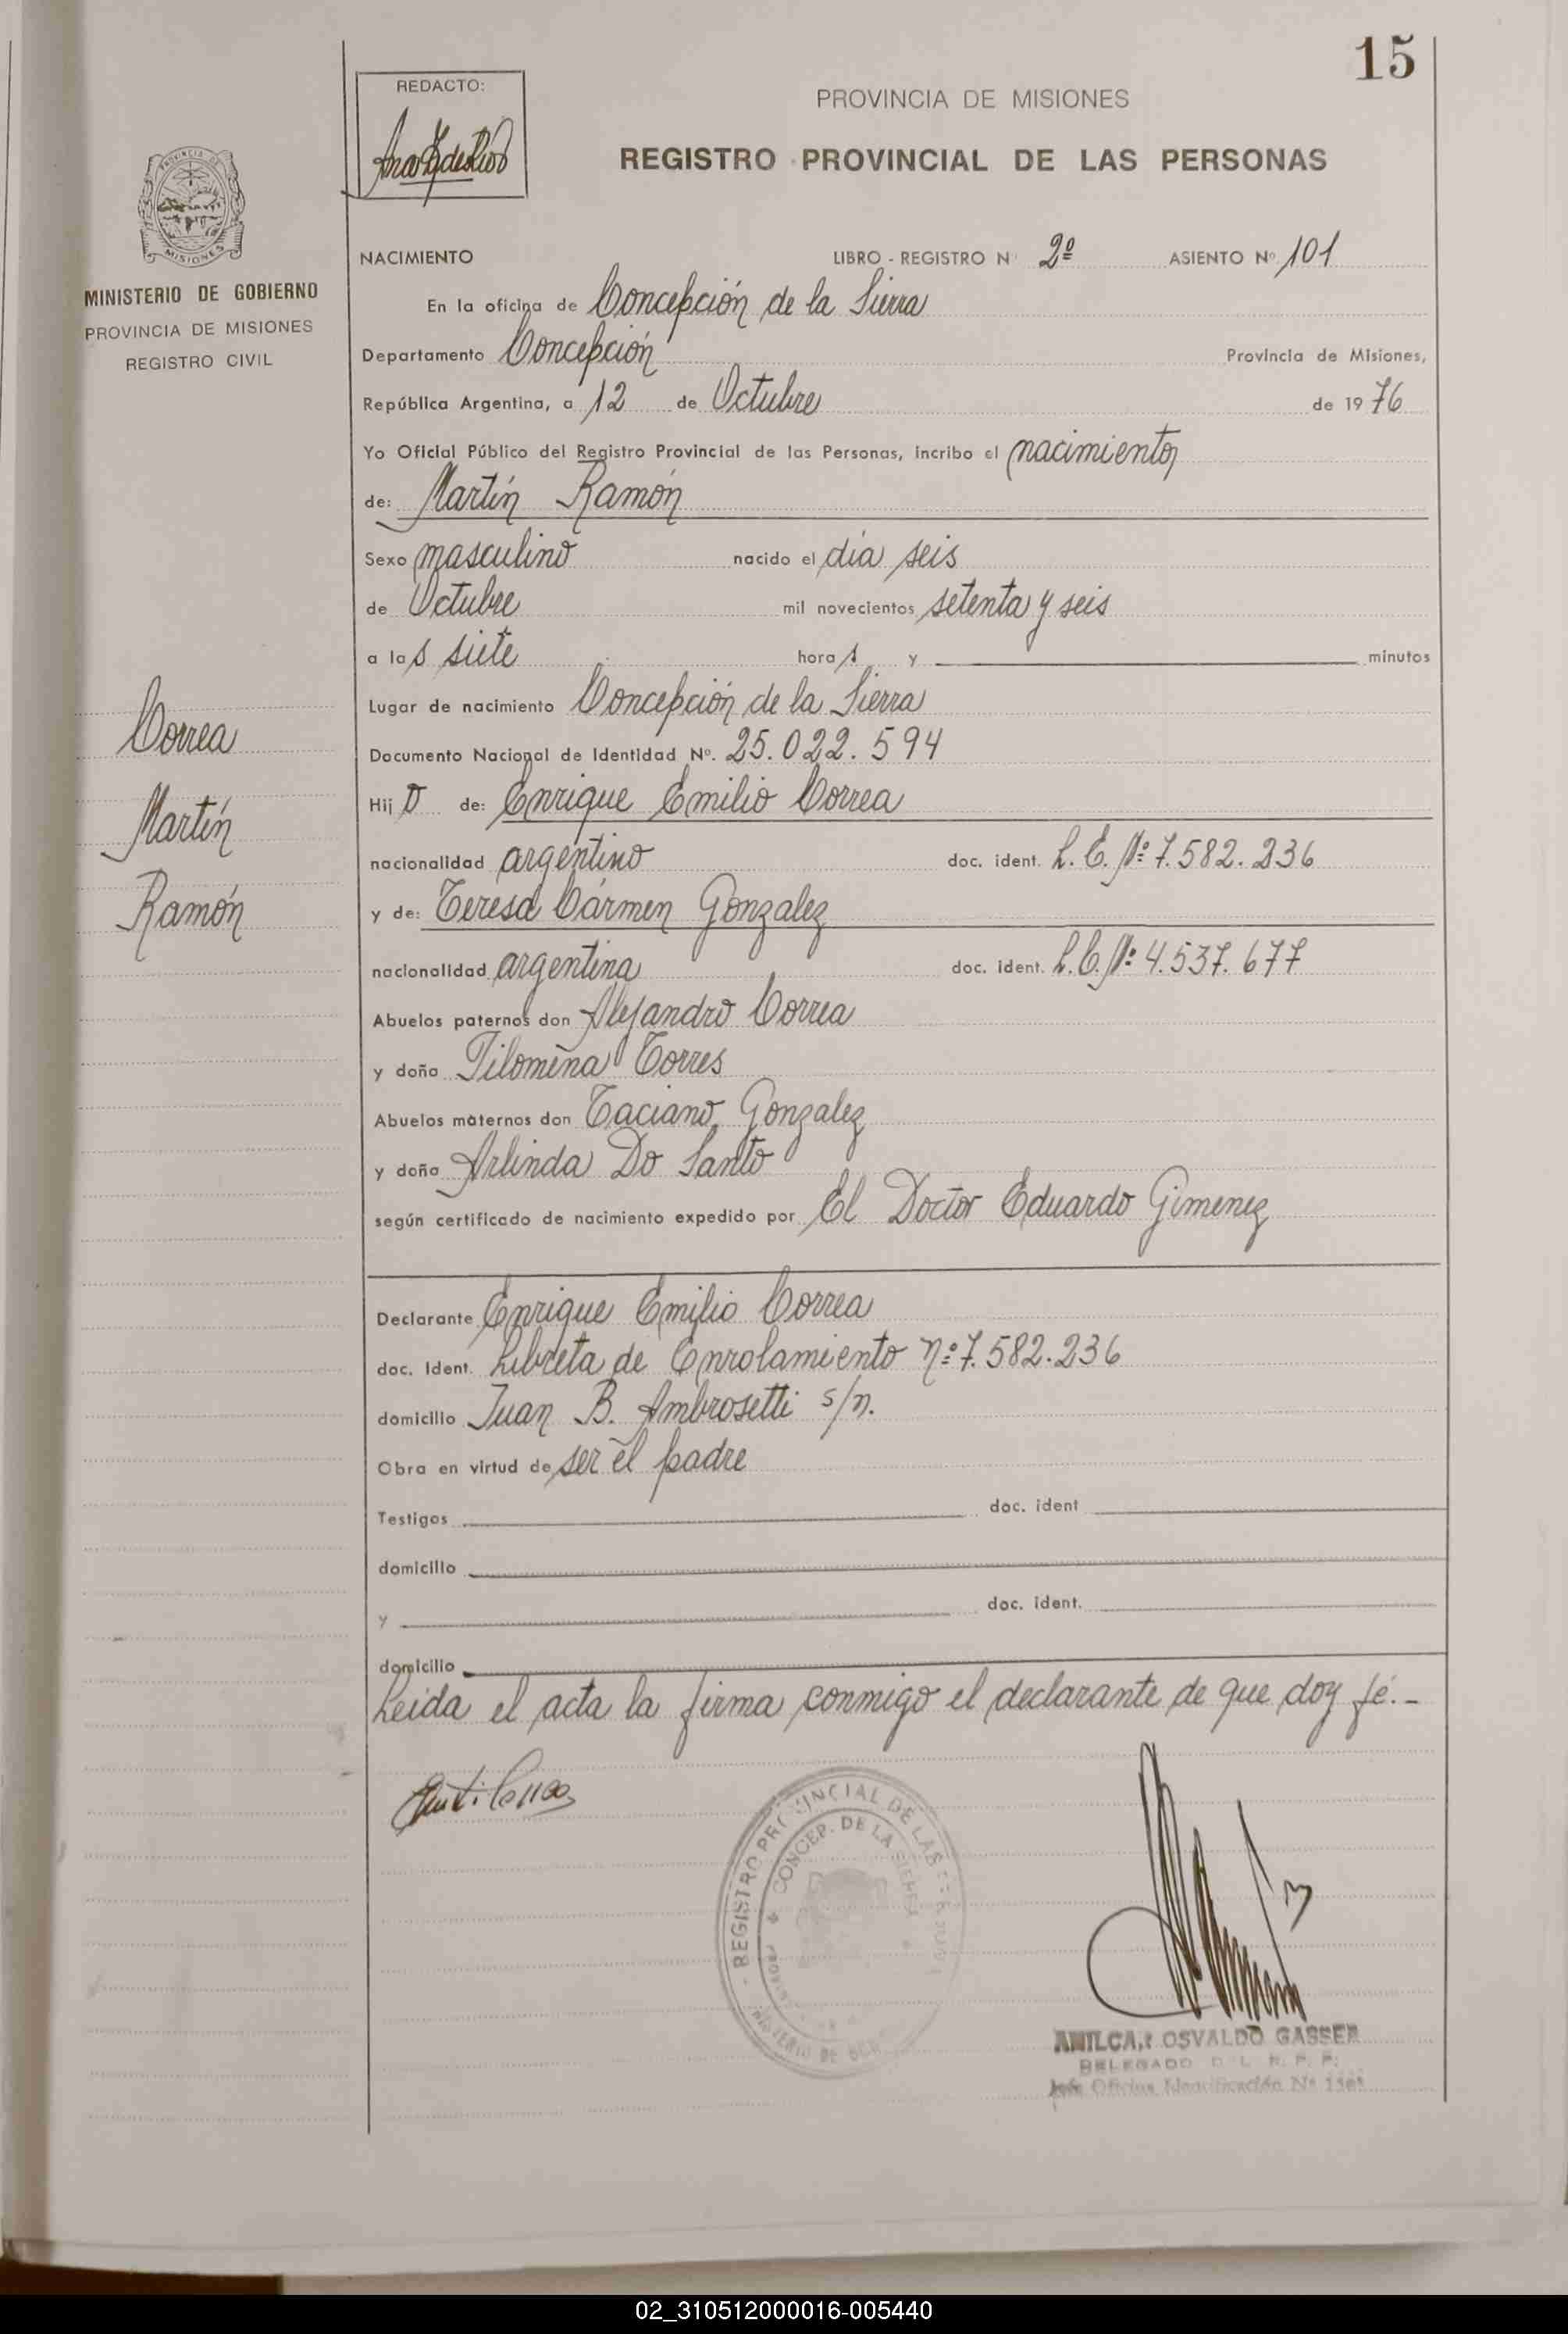 15
REDACTO:
PROVINCIA DE MISIONES
REGISTRO PROVINCIAL DE LAS PERSONAS
PROVINCIA DE
MISIONES
MINISTERIO DE GOBIERNO
PROVINCIA DE MISIONES
REGISTRO CIVIL
NACIMIENTO LIBRO - REGISTRO Nº 2º ASIENTO Nº 101
En la oficina de Concepción de la Sierra
Departamento Concepción Provincia de Misiones,
República Argentina, a 12 de Octubre de 1976
Yo Oficial Público del Registro Provincial de las Personas, incribo el nacimiento
de: Martín Ramón
Sexo masculino nacido el día seis
de Octubre mil novecientos setenta y seis
a las siete horas y minutos
Lugar de nacimiento Concepción de la Sierra
Documento Nacional de Identidad Nº. 25.022.594
Hijo de: Enrique Emilio Correa
nacionalidad argentino doc. ident. L.E. Nº 7.582.236
y de: Teresa Cármen Gonzalez
nacionalidad argentina doc. ident. L.C. Nº 4.537.677
Abuelos paternos don Alejandro Correa
y doña Filomena Torres
Abuelos maternos don Taciano Gonzalez
y doña Arlinda Do Santo
según certificado de nacimiento expedido por El Doctor Eduardo Gimenez
Correa
Martín
Ramón
Declarante Enrique Emilio Correa
doc. ident. Libreta de Enrolamiento nº 7.582.236
domicilio Juan B. Ambrosetti s/n.
Obra en virtud de ser el padre
Testigos doc. ident
domicilio
y doc. ident.
domicilio
Leida el acta la firma conmigo el declarante de que doy fé.-
REGISTRO PROVINCIAL DE LAS
CONCEP. DE LA SIERRA
AMILCAR OSVALDO GASSER
DELEGADO
02_310512000016-005440